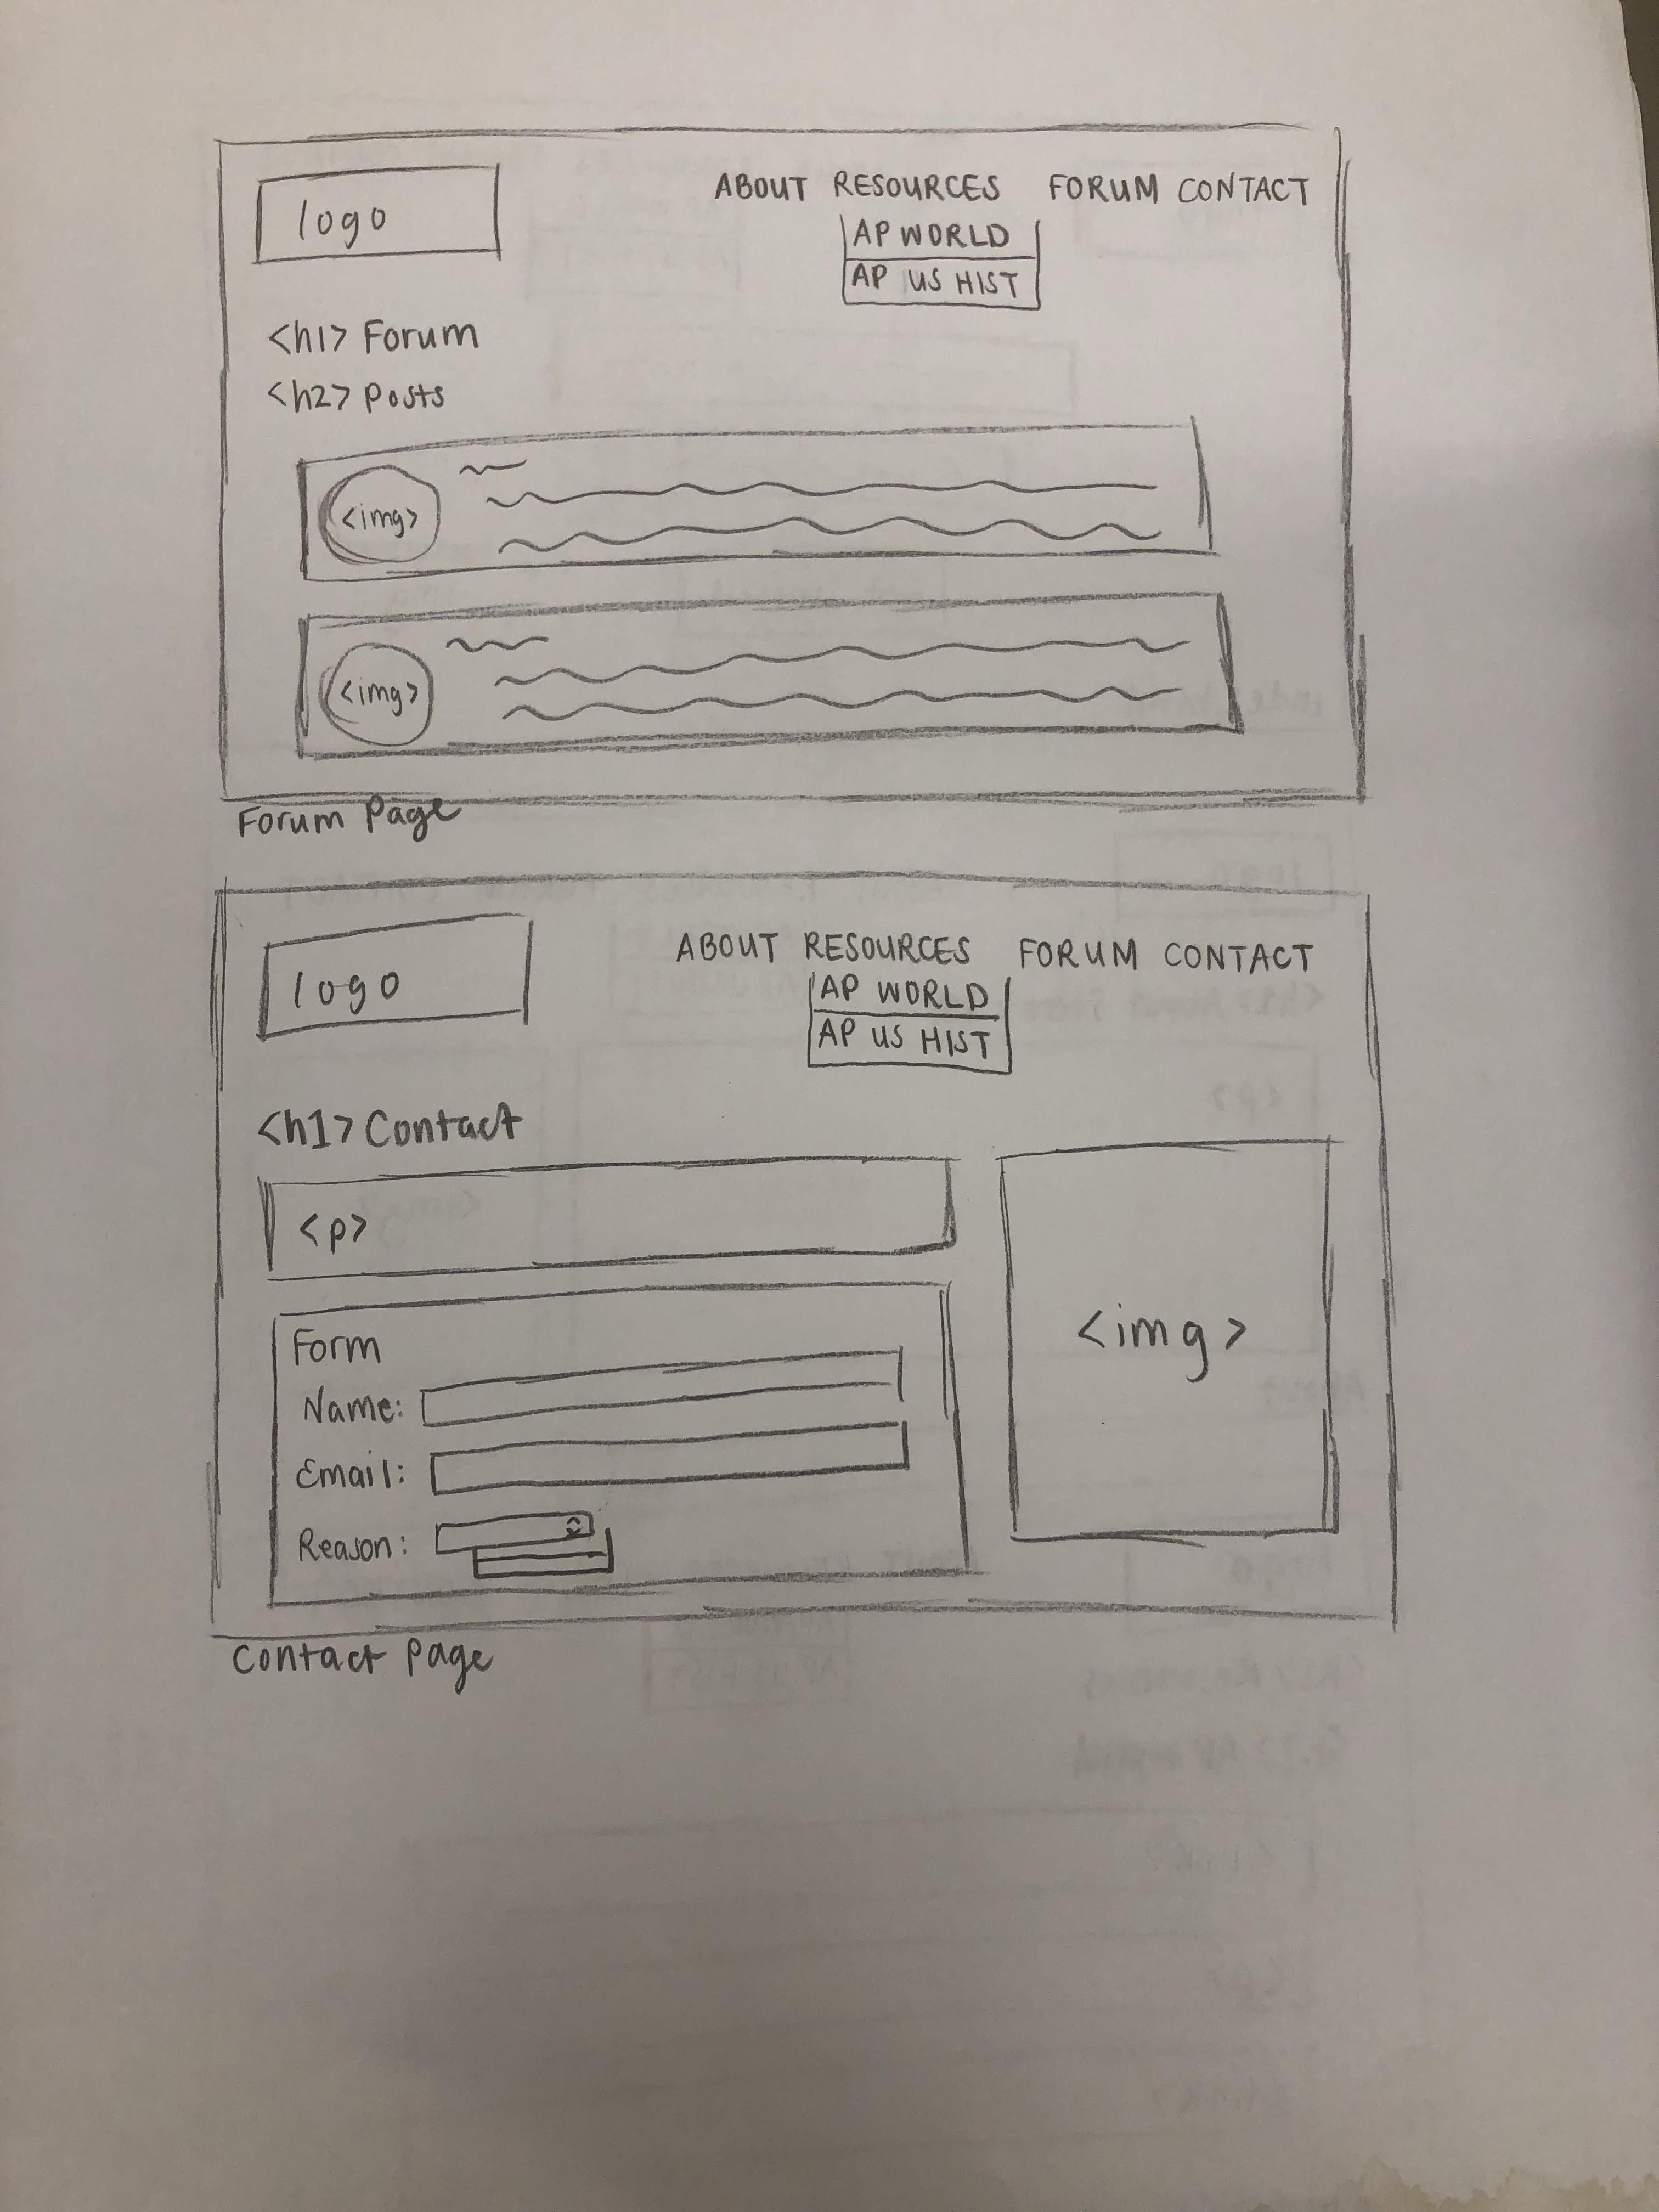 logo
ABOUT RESOURCES FORUM CONTACT
AP WORLD
AP US HIST
<h1> Forum
<h2> Posts
<img>
<img>
Forum Page
logo
ABOUT RESOURCES FORUM CONTACT
AP WORLD
AP US HIST
<h1> Contact
<p>
<img>
Form
Name:
Email:
Reason:
Contact Page